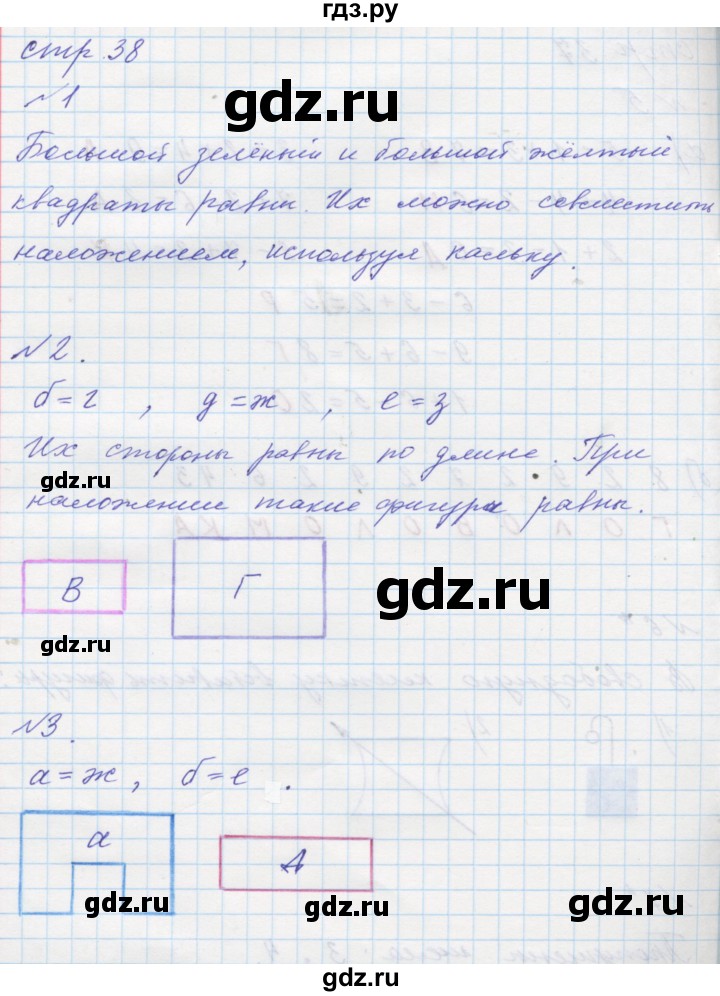 гдз.ру
стр 38
№1
gdz.ru
Большой зелёный и большой жёлтый
квадраты равны. Их можно совместить
наложением, используя кальку.
№2.
б=г, д=ж, е=з
Их стороны равны по длине. При
gdz.ru
наложении такие фигуры равны.
В
Г
gdz.ru
gdz.ru
№3.
а=ж, б=е.
а
Д
gdz.ru
gdz.ru
gdz.ru
gdz.ru